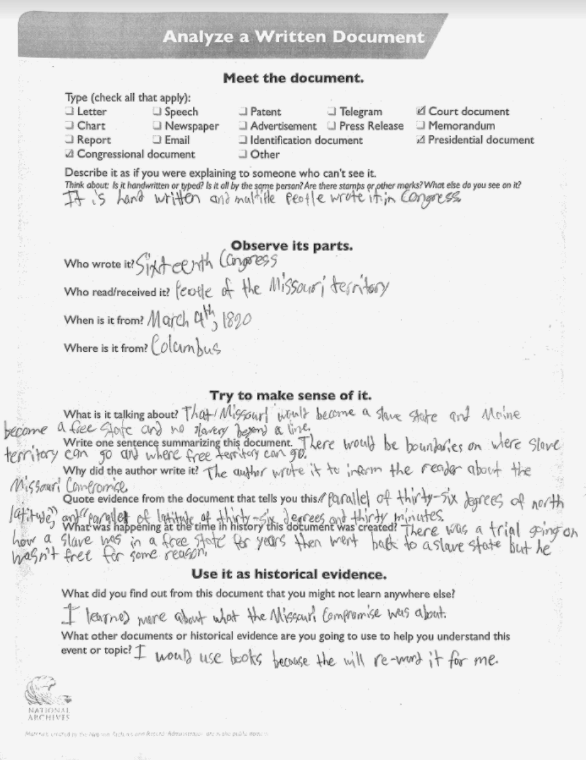 Analyze a Written Document
Meet the document.
Type (check all that apply):
❏ Letter ❏ Speech ❏ Patent ❏ Telegram ☑ Court document
❏ Chart ❏ Newspaper ❏ Advertisement ❏ Press Release ❏ Memorandum
❏ Report ❏ Email ❏ Identification document ☑ Presidential document
☑ Congressional document ❏ Other
Describe it as if you were explaining to someone who can't see it.
Think about: Is it handwritten or typed? Is it all by the same person? Are there stamps or other marks? What else do you see on it?
It is hand written and multiple people wrote it in Congress.
Observe its parts.
Who wrote it? Sixteenth Congress
Who read/received it? People of the Missouri territory
When is it from? March 4th, 1820
Where is it from? Columbus
Try to make sense of it.
What is it talking about? That Missouri would become a slave state and Maine
become a free state and no slavery beyond a line.
Write one sentence summarizing this document. There would be boundaries on where slave
territory can go and where free territory can go.
Why did the author write it? The author wrote it to inform the reader about the
Missouri Compromise
Quote evidence from the document that tells you this. "parallel of thirty-six degrees of north
latitude," and "parallel of latitude of thirty-six degrees and thirty minutes.
What was happening at the time in history this document was created? There was a trial going on
how a slave was in a free state for years then went back to a slave state but he
wasn't free for some reason.
Use it as historical evidence.
What did you find out from this document that you might not learn anywhere else?
I learned more about what the Missouri Compromise was about.
What other documents or historical evidence are you going to use to help you understand this
event or topic? I would use books because the will re-word it for me.
NATIONAL
ARCHIVES